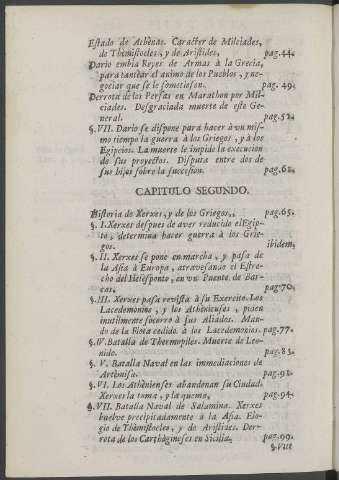 Estado de Athènas. Caracter de Milciades,
de Themistocles, y de Aristides, pag.44.
Dario embia Reyes de Armas à la Grecia,
para tantear el animo de los Pueblos, y ne-
gociar que se le sometiesen. pag. 49.
Derrota de los Persas en Marathon por Mil-
ciades. Desgraciada muerte de este Ge-
neral. pag.52.
§.VII. Dario se dispone para hacer à un mis-
mo tiempo la guerra à los Griegos, y à los
Egipcios. La muerte le impide la execucion
de sus proyectos. Disputa entre dos de
sus hijos sobre la succesion. pag.62.
CAPITULO SEGUNDO.
Historia de Xerxes, y de los Griegos. pag.65.
§. I. Xerxes despues de aver reducido el Egip-
to, determina hacer guerra à los Grie-
gos. ibidem.
§. II. Xerxes se pone en marcha, y pasa de
la Asia à Europa, atravesando el Estre-
cho del Helesponto, en un Puente de Bar-
cas. pag.70.
§.III. Xerxes pasa revista à su Exercito. Los
Lacedemonios, y los Athenienses, piden
inutilmente socorro à sus Aliados. Man-
do de la Flota cedido à los Lacedemonios. pag.77.
§.IV. Batalla de Thermopiles. Muerte de Leo-
nido. pag.83.
§. V. Batalla Naval en las inmediaciones de
Artèmisa. pag.92.
§.VI. Los Athènienses abandonan su Ciudad.
Xerxes la toma, y la quema, pag.94.
§.VII. Batalla Naval de Salamina. Xerxes
buelve precipitadamente à la Asia. Elo-
gio de Themistocles, y de Aristides. Der-
rota de los Carthagineses en Sicilia, pag.99.
§.VIII